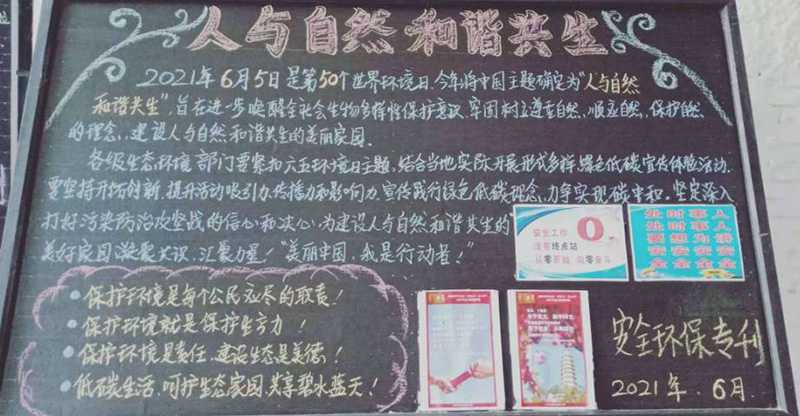 人与自然 和谐共生
2021年6月5日是第50个世界环境日.今年将中国主题确定为"人与自然
和谐共生",旨在进一步唤醒全社会生物多样性保护意识,牢固树立尊重自然、顺应自然、保护自然
的理念,建设人与自然和谐共生的美丽家园.
各级生态环境部门要紧扣六五环境日主题,结合当地实际开展形式多样、绿色低碳宣传体验活动,
要坚持开拓创新,提升活动吸引力、传播力和影响力,宣传践行绿色低碳理念,力争实现碳中和,坚定深入
打好污染防治攻坚战的信心和决心,为建设人与自然和谐共生的
美好家园凝聚共识、汇聚力量!"美丽中国,我是行动者!"
安全工作 0
没有终点站
从零开始 向零奋斗
处时事人
处时事人
要想为讲
安安安安
全全全全
• 保护环境是每个公民应尽的职责!
• 保护环境就是保护生产力
• 保护环境是责任,建设生态是美德!
• 低碳生活,呵护生态家园,共享碧水蓝天!
安全环保专刊
2021年.6月.